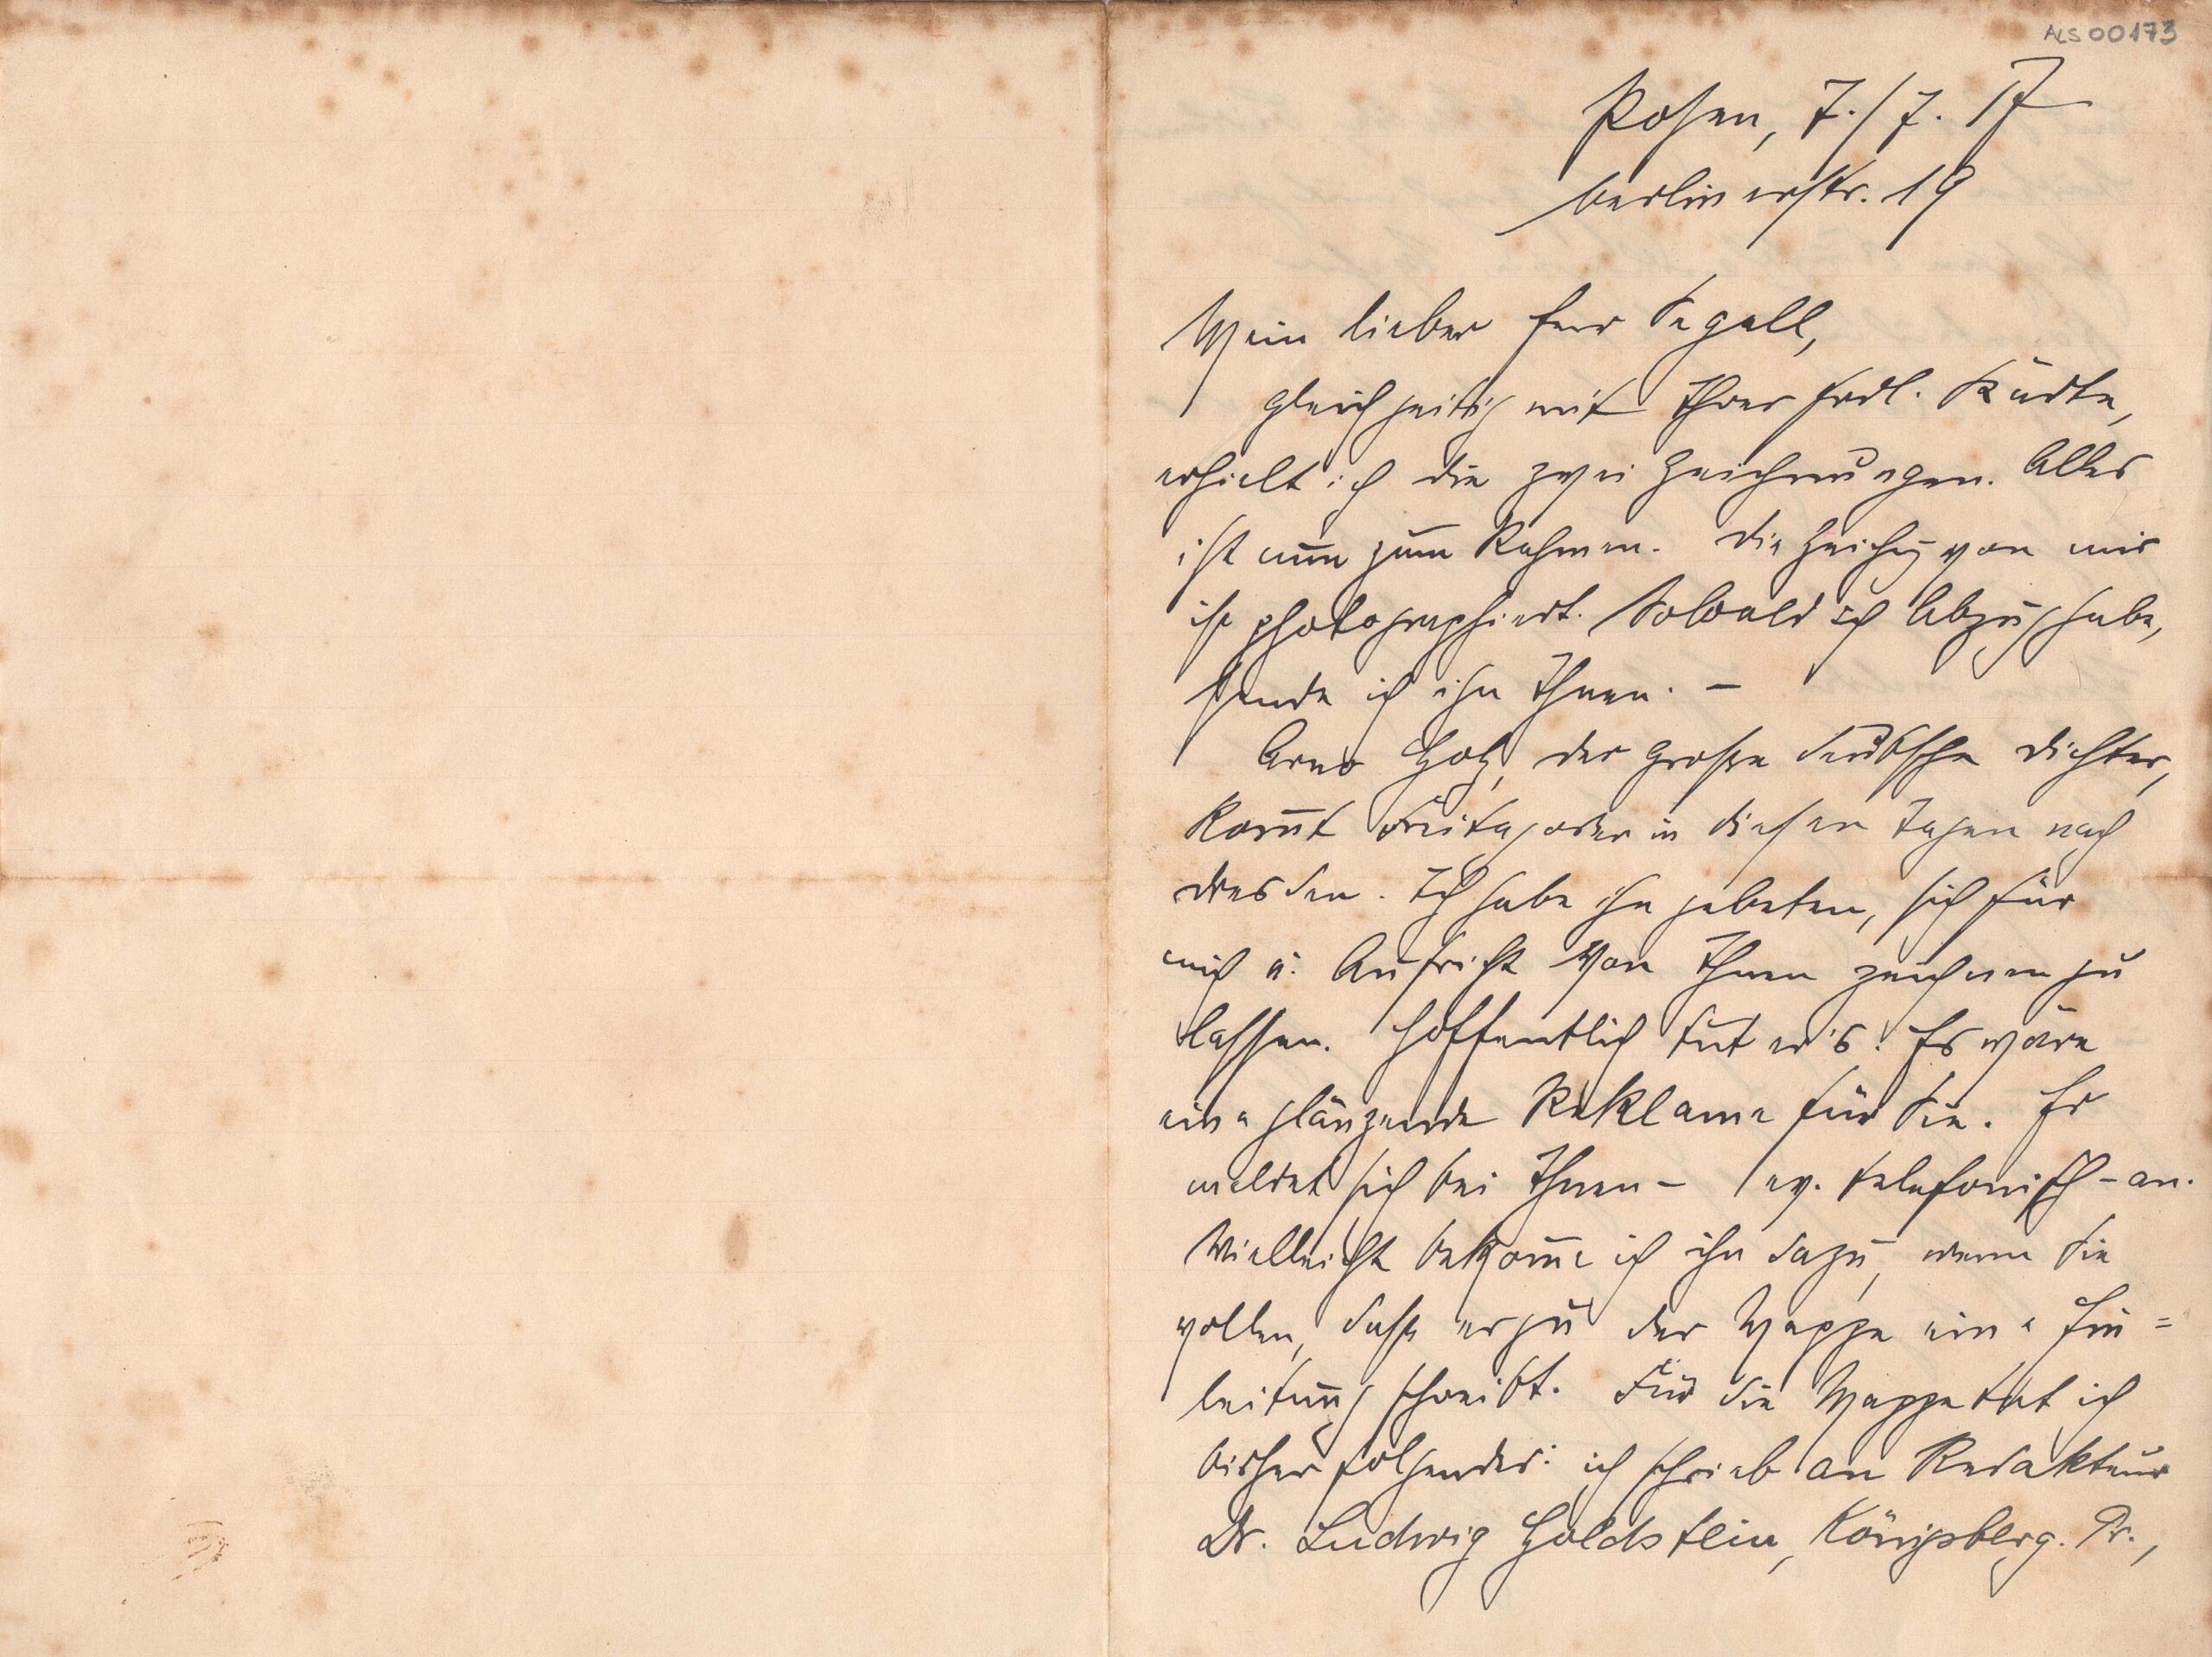 ALS 00173
Posen, 7./7. 17
Berlinerstr. 19
Mein lieber Herr Segall,
gleichzeitig mit Ihrer frdl. Karte,
erhielt ich die zwei Zeichnungen. Alles
ist nun zum Rahmen. Die Zeichg von mir
ist photographiert. Sobald ich Abzug habe,
sende ich ihn Ihnen. –
Arno Holz, der große deutsche Dichter,
kom̅t Freitag oder in diesen Tagen nach
Dresden. Ich habe ihn gebeten, sich für
mich u. Aufricht von Ihnen zeichnen zu
lassen. Hoffentlich tut er's! Es wäre
eine glänzende Reklame für Sie. Er
meldet sich bei Ihnen – ev. telefonisch – an.
Vielleicht bekom̅e ich ihn dazu, wenn Sie
wollen, dass er zu der Mappe eine Ein=
leitung schreibt. Für die Mappe tat ich
bisher folgendes: ich schrieb an Redakteur
Dr. Ludwig Goldstein, Königsberg. Pr.,